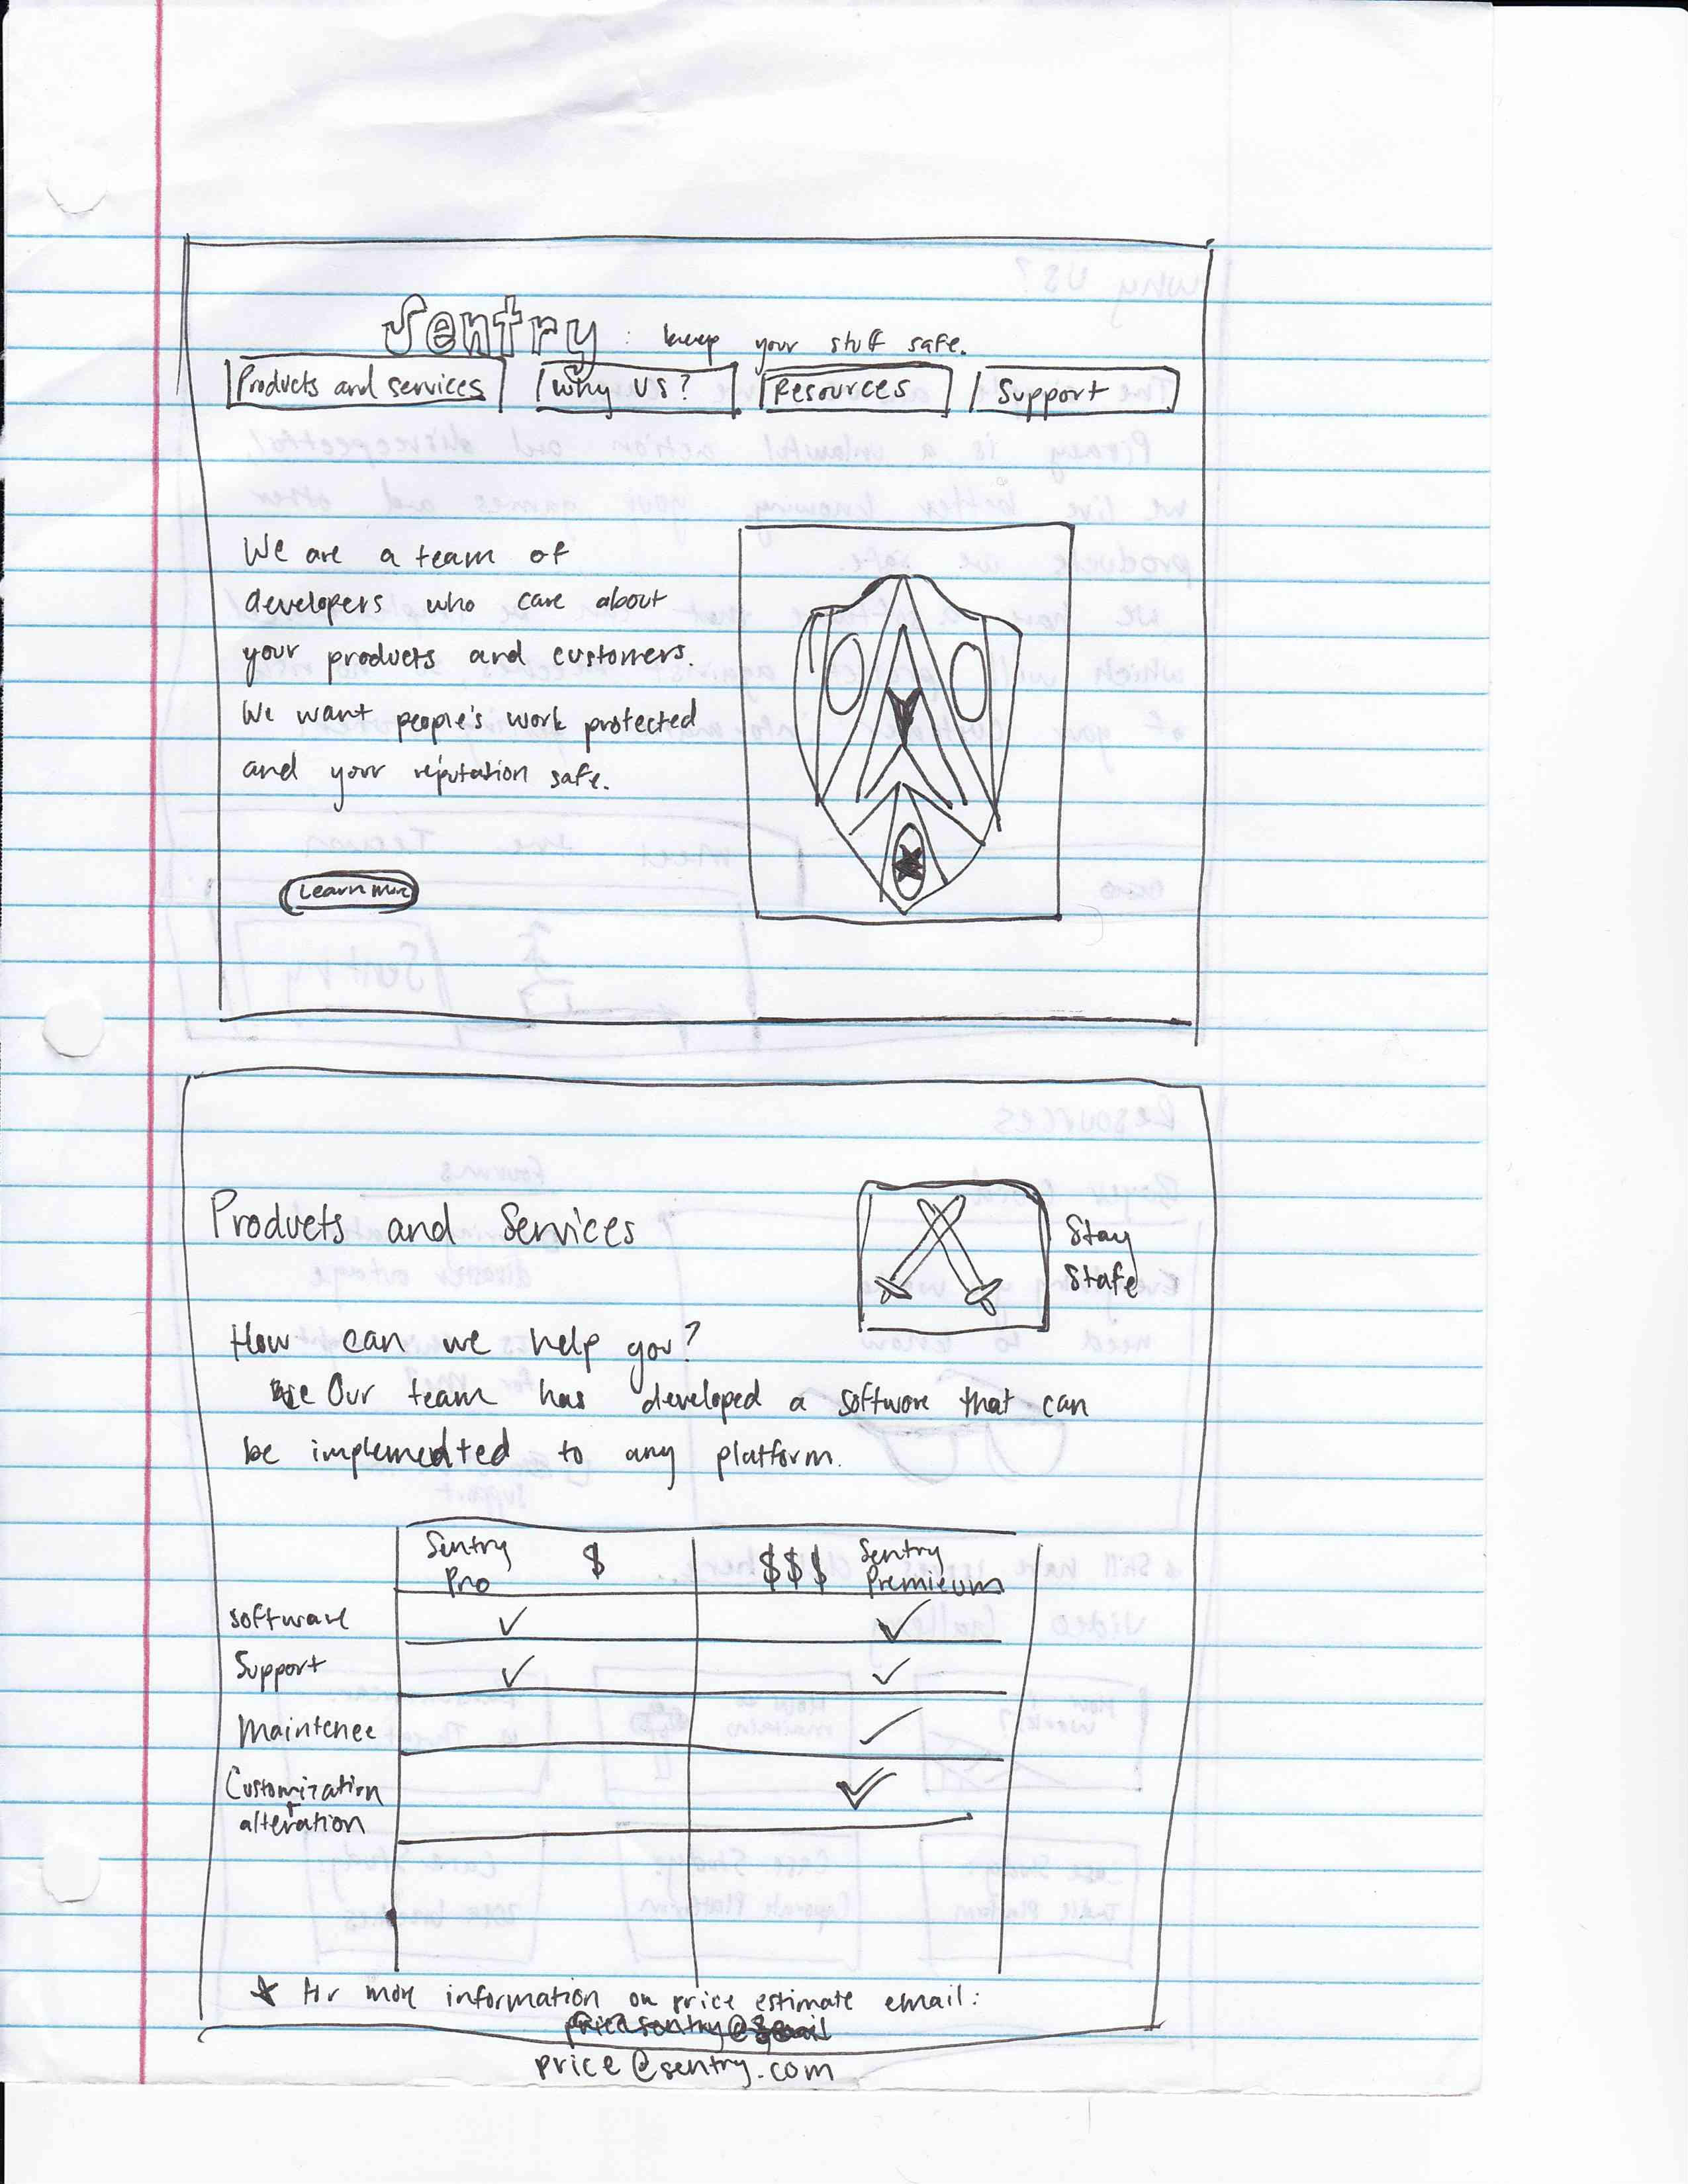 Sentry : keep your stuff safe.
Products and services Why US? Resources Support
We are a team of
developers who care about
your products and customers.
We want people's work protected
and your reputation safe.
Learn more
Products and Services
Stay
Stafe
How can we help you?
Our team has developed a software that can
be implemented to any platform.
Sentry Pro $ $$$ Sentry Premieum
software ✓ ✓
Support ✓ ✓
Maintenee ✓
Customization ✓
+
alteration
* for more information on price estimate email:
price@sentry.com